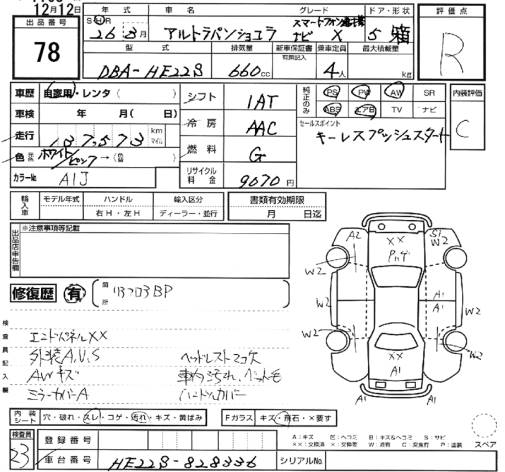 12月12日
出品番号
78
年式 車名 グレード ドア・形状
S H R 26年3月 アルトラパンショコラ X 5 箱
評価点
R
型式 排気量 新車保証書 有無記入 乗車定員 最大積載量
DBA-HE22S 660cc 4人 kg
車歴 自家用・レンタ( )
車検 年 月( 日)
走行 137,573 km マイル
色 ホワイト/ピンク → (色 )
カラーNo A1J
シフト IAT
冷房 AAC
燃料 G
リサイクル料金 9670円
純正のみ PS PW AW SR
ABS エアB TV ナビ
セールスポイント
キーレスプッシュスタート
内装評価
C
輸入車 モデル年式 ハンドル 輸入区分
右H・左H ディーラー・並行
書類有効期限
月 日迄
出品店申告欄
※注意事項等記載
修復歴 有 箇所
検査員記入欄
エンドパネルXX
外装A,U,S
AWキズ
ミラーカバーA
ハンドルカバー
A2 XX S1 W2
W2 W2
A1 A1
W2 W2
XX
A1 A1
内装シート 穴・破れ・スレ・コゲ・汚れ・キズ・黄ばみ
Fガラス キズ・飛石・×要す
A:キズ U:ヘコミ B:キズ&ヘコミ S:サビ
スペア
検査員
23
登録番号
車台番号 HE22S-828336 シリアルNo